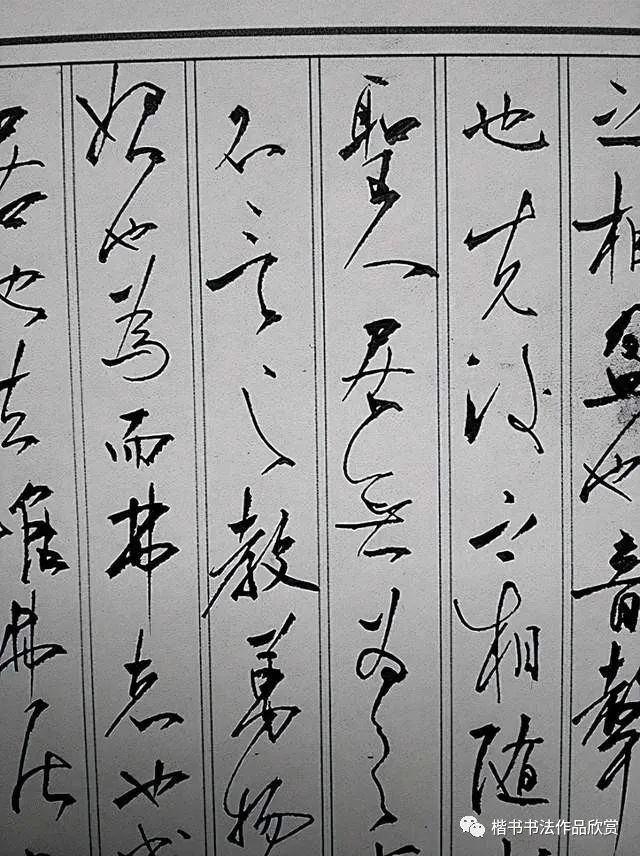 之相盈也音聲
也先後之相随
聖人居無為之
不言之教萬物
始也為而弗志也成
居也夫唯弗居
楷书书法作品欣赏